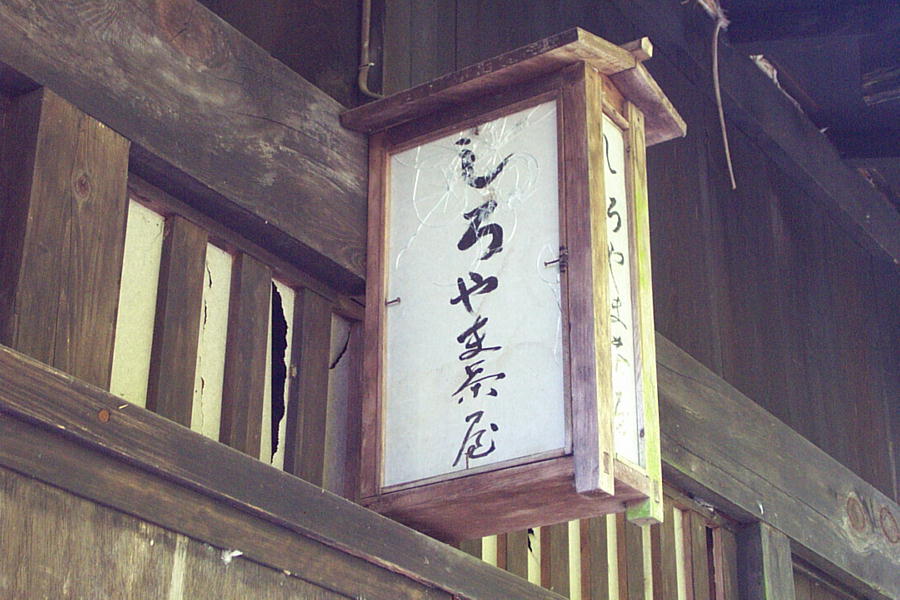 しろやま茶屋
しろやま茶屋